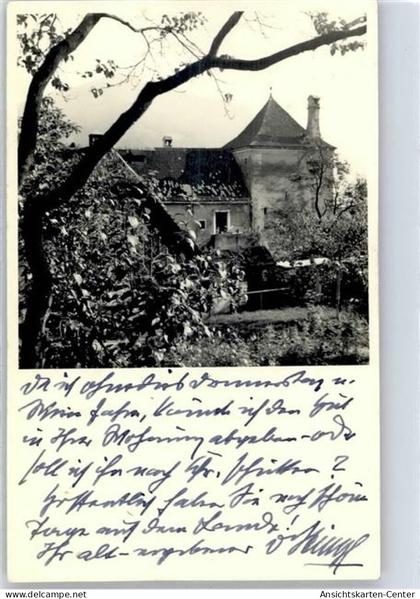 Da ich ohnedies Donnerstag n.
Wien fahre, könnte ich den Hut
in Ihrer Wohnung abgeben – oder
soll ich ihn nach schicken?
Hoffentlich haben Sie noch schöne
Tage auf dem Lande!
Ihr alt-ergebener
Ansichtskarten-Center